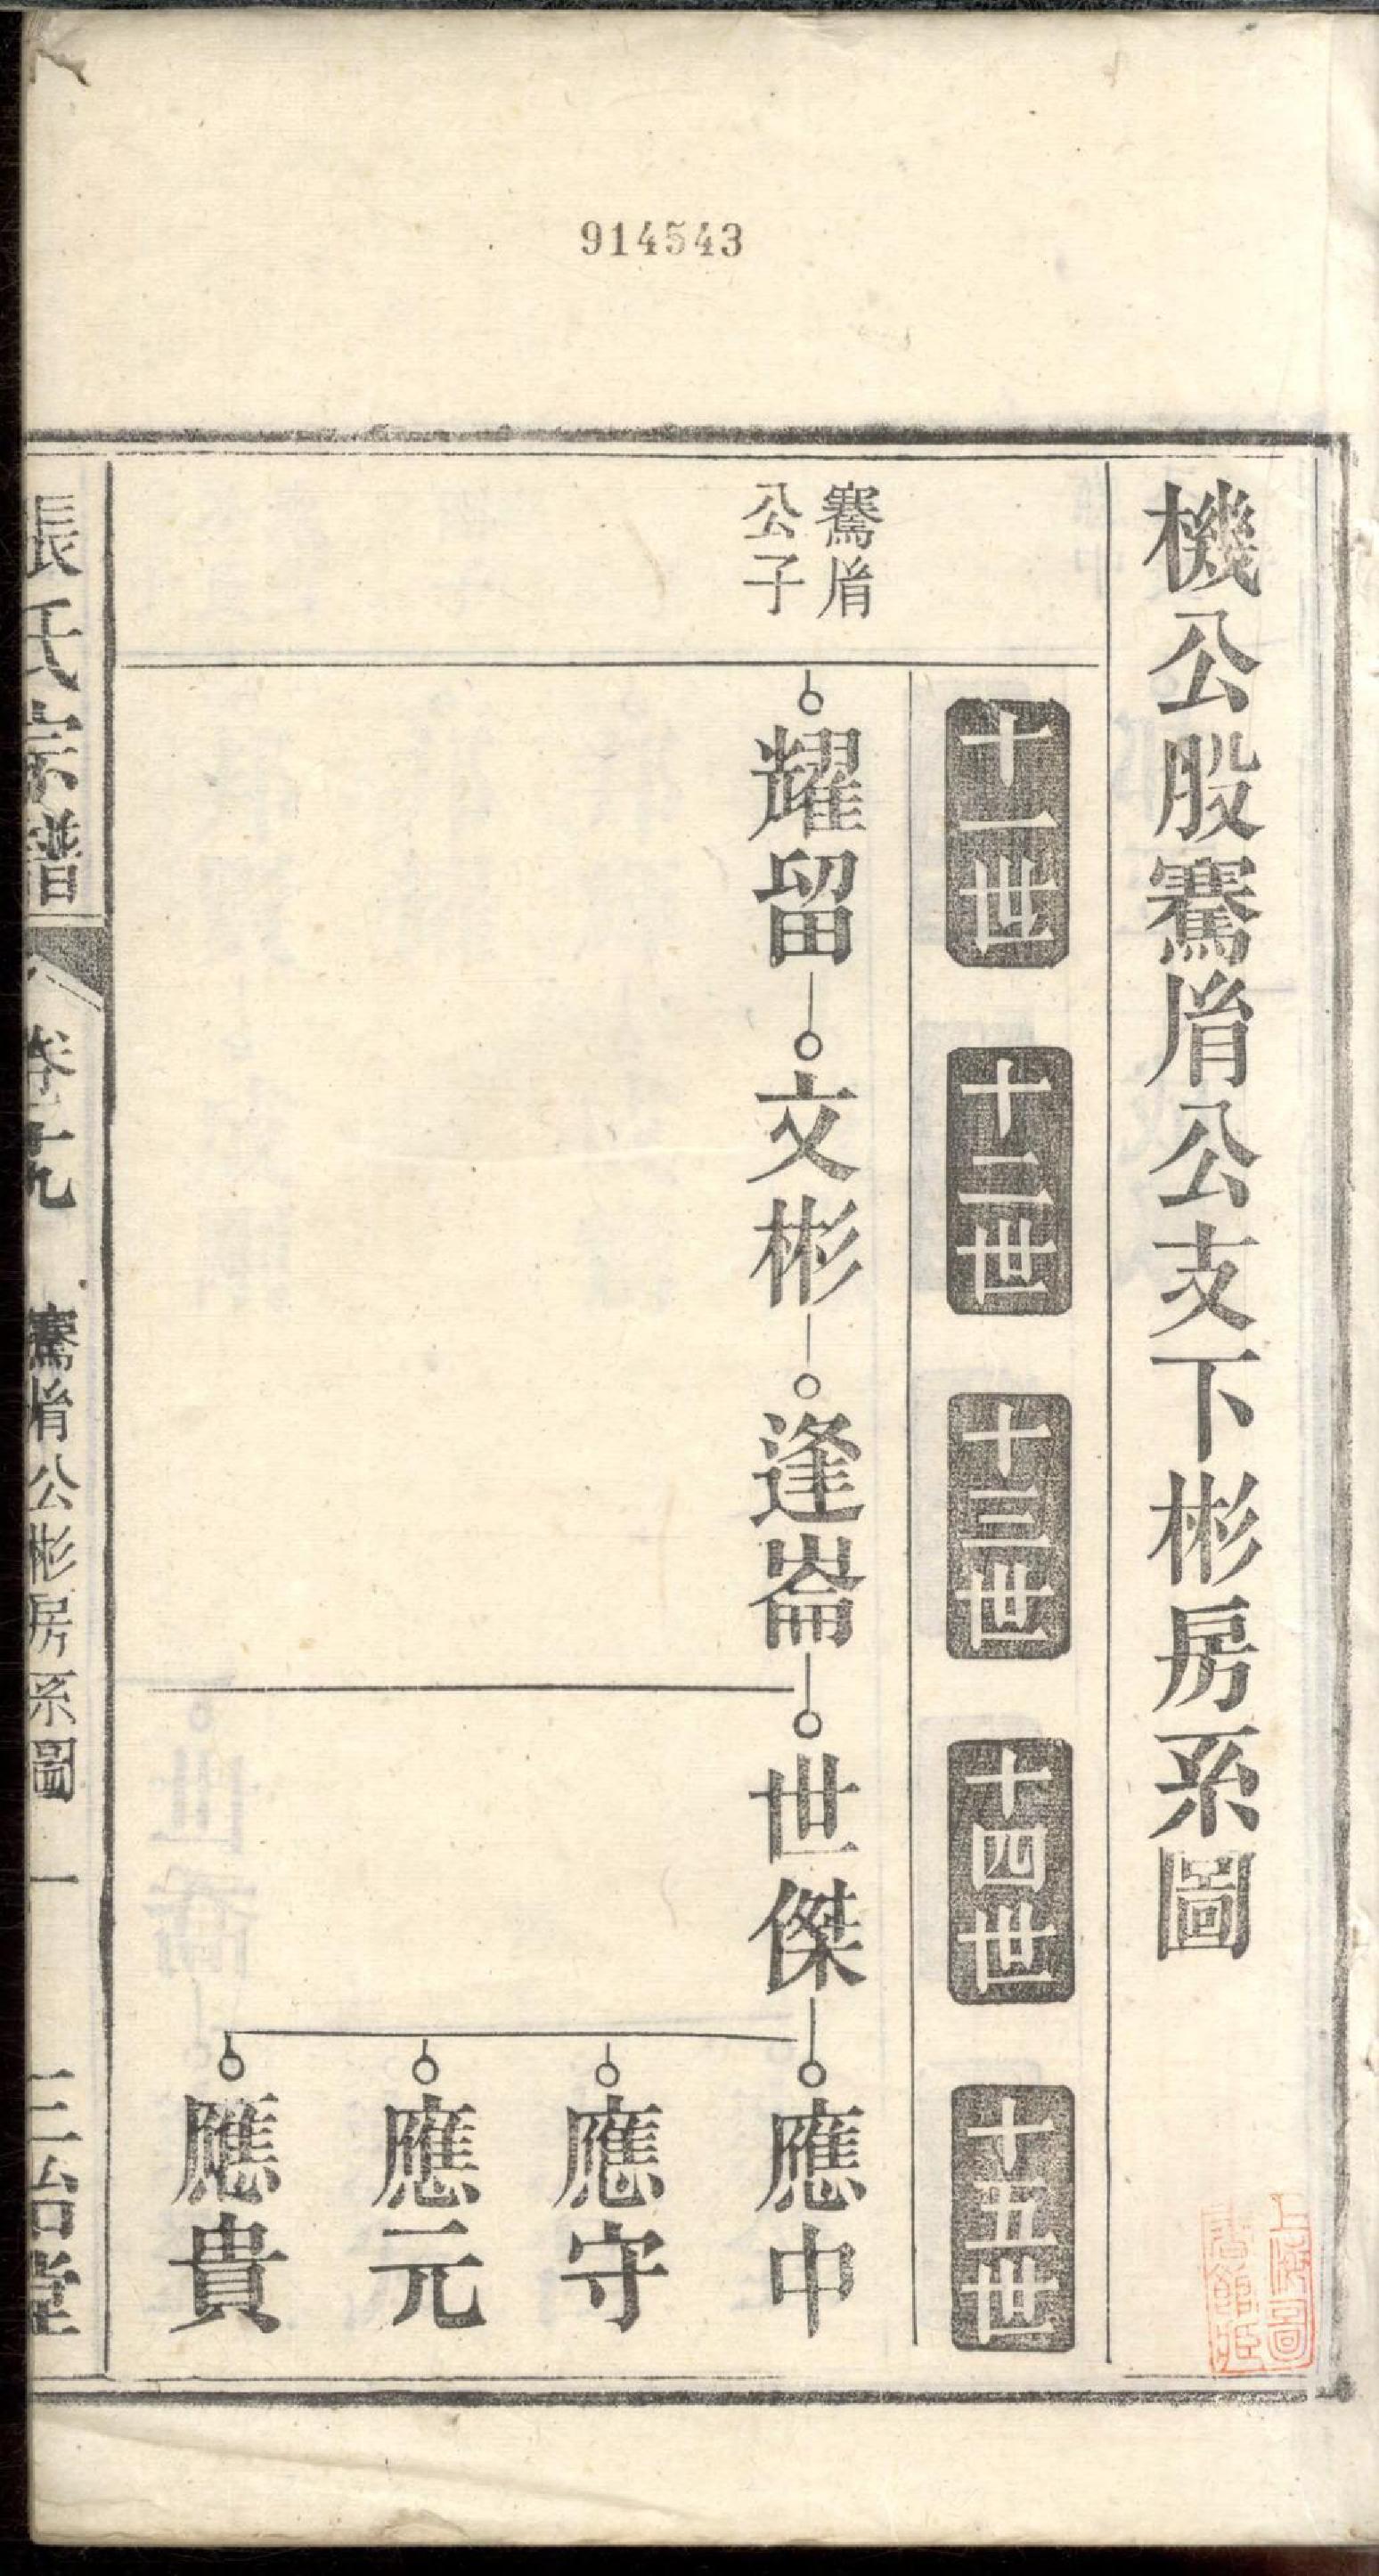 914543
機公股騫𦙍公支下彬房系圖
上海圖
書館藏
十一世
十二世
十三世
十四世
十五世
騫𦙍
公子
耀留
文彬
逢崙
世傑
應中
應守
應元
應貴
張氏宗譜
卷十九
騫𦙍公彬房系圖
一
三 堂